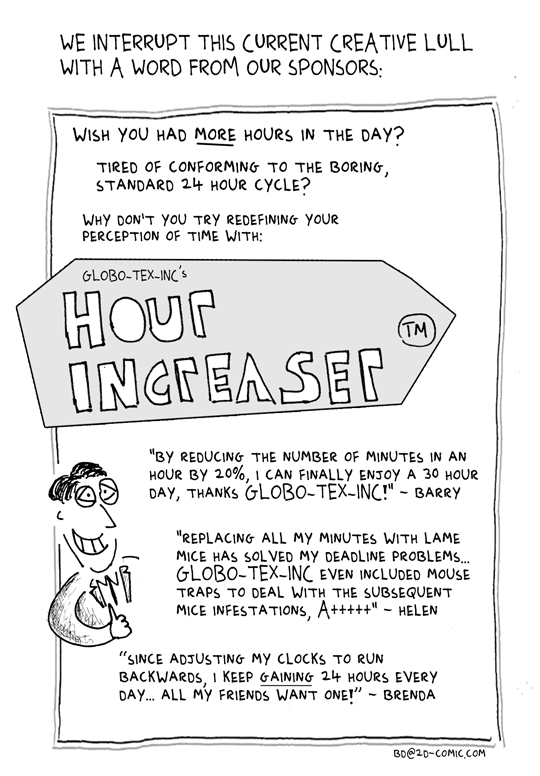 WE INTERRUPT THIS CURRENT CREATIVE LULL
WITH A WORD FROM OUR SPONSORS:
WISH YOU HAD MORE HOURS IN THE DAY?
TIRED OF CONFORMING TO THE BORING,
STANDARD 24 HOUR CYCLE?
WHY DON'T YOU TRY REDEFINING YOUR
PERCEPTION OF TIME WITH:
GLOBO-TEX-INC's
HOUR
INCREASER
TM
"BY REDUCING THE NUMBER OF MINUTES IN AN
HOUR BY 20%, I CAN FINALLY ENJOY A 30 HOUR
DAY, THANKS GLOBO-TEX-INC!" - BARRY
"REPLACING ALL MY MINUTES WITH LAME
MICE HAS SOLVED MY DEADLINE PROBLEMS...
GLOBO-TEX-INC EVEN INCLUDED MOUSE
TRAPS TO DEAL WITH THE SUBSEQUENT
MICE INFESTATIONS, A+++++" - HELEN
"SINCE ADJUSTING MY CLOCKS TO RUN
BACKWARDS, I KEEP GAINING 24 HOURS EVERY
DAY... ALL MY FRIENDS WANT ONE!" ~ BRENDA
BD@2D-COMIC.COM